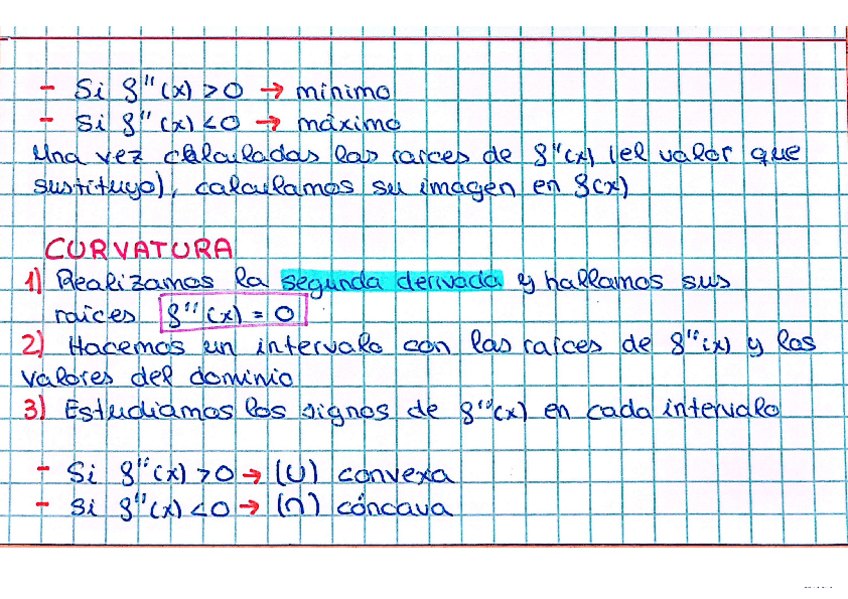 - Si f''(x) > 0 → mínimo
- Si f''(x) < 0 → máximo
Una vez calculadas las raíces de f''(x) (el valor que
sustituyo), calculamos su imagen en f(x)
CURVATURA
1) Realizamos la segunda derivada y hallamos sus
raíces f''(x) = 0
2) Hacemos un intervalo con las raíces de f''(x) y los
valores del dominio
3) Estudiamos los signos de f''(x) en cada intervalo
- Si f''(x) > 0 → (∪) convexa
- Si f''(x) < 0 → (∩) cóncava